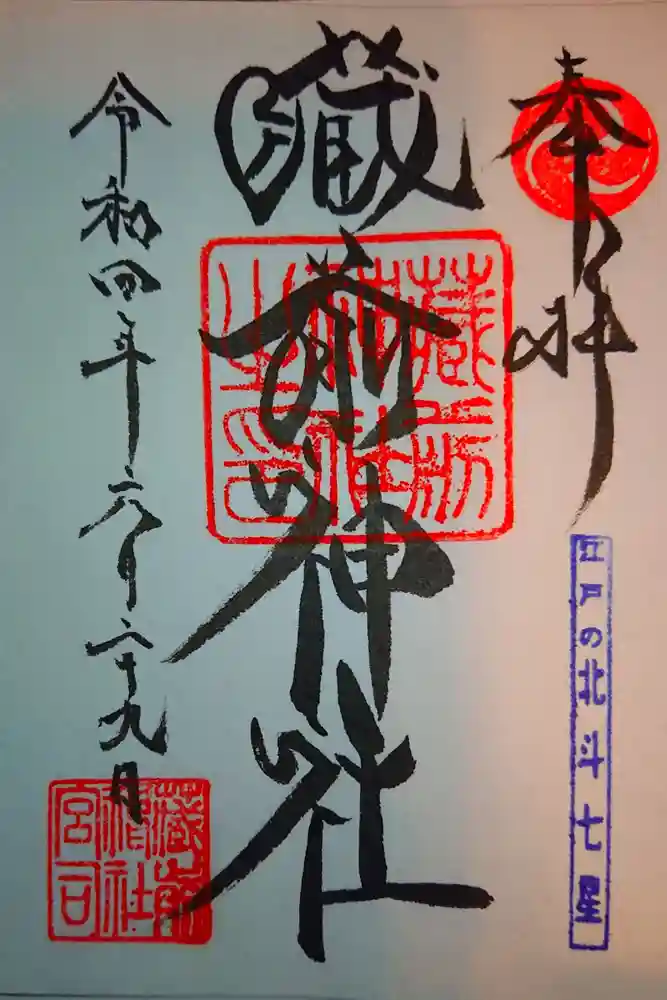 奉拝
江戸の北斗七星
藏前神社
藏前
神社
之印
令和四年六月二十九日
藏前
神社
宮司